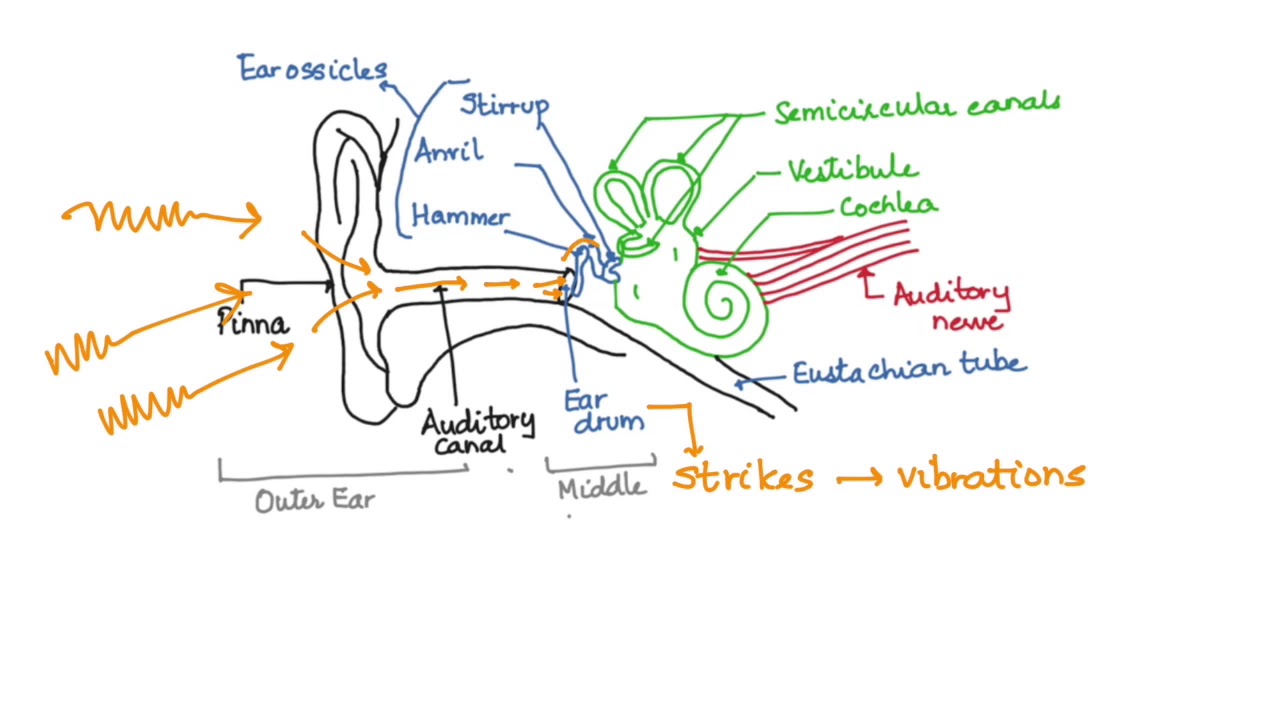 Ear ossicles
Stirrup
Anvil
Hammer
Semicircular canals
Vestibule
Cochlea
Pinna
Auditory
nerve
Eustachian tube
Ear
drum
Auditory
canal
Outer Ear
Middle
Strikes → vibrations